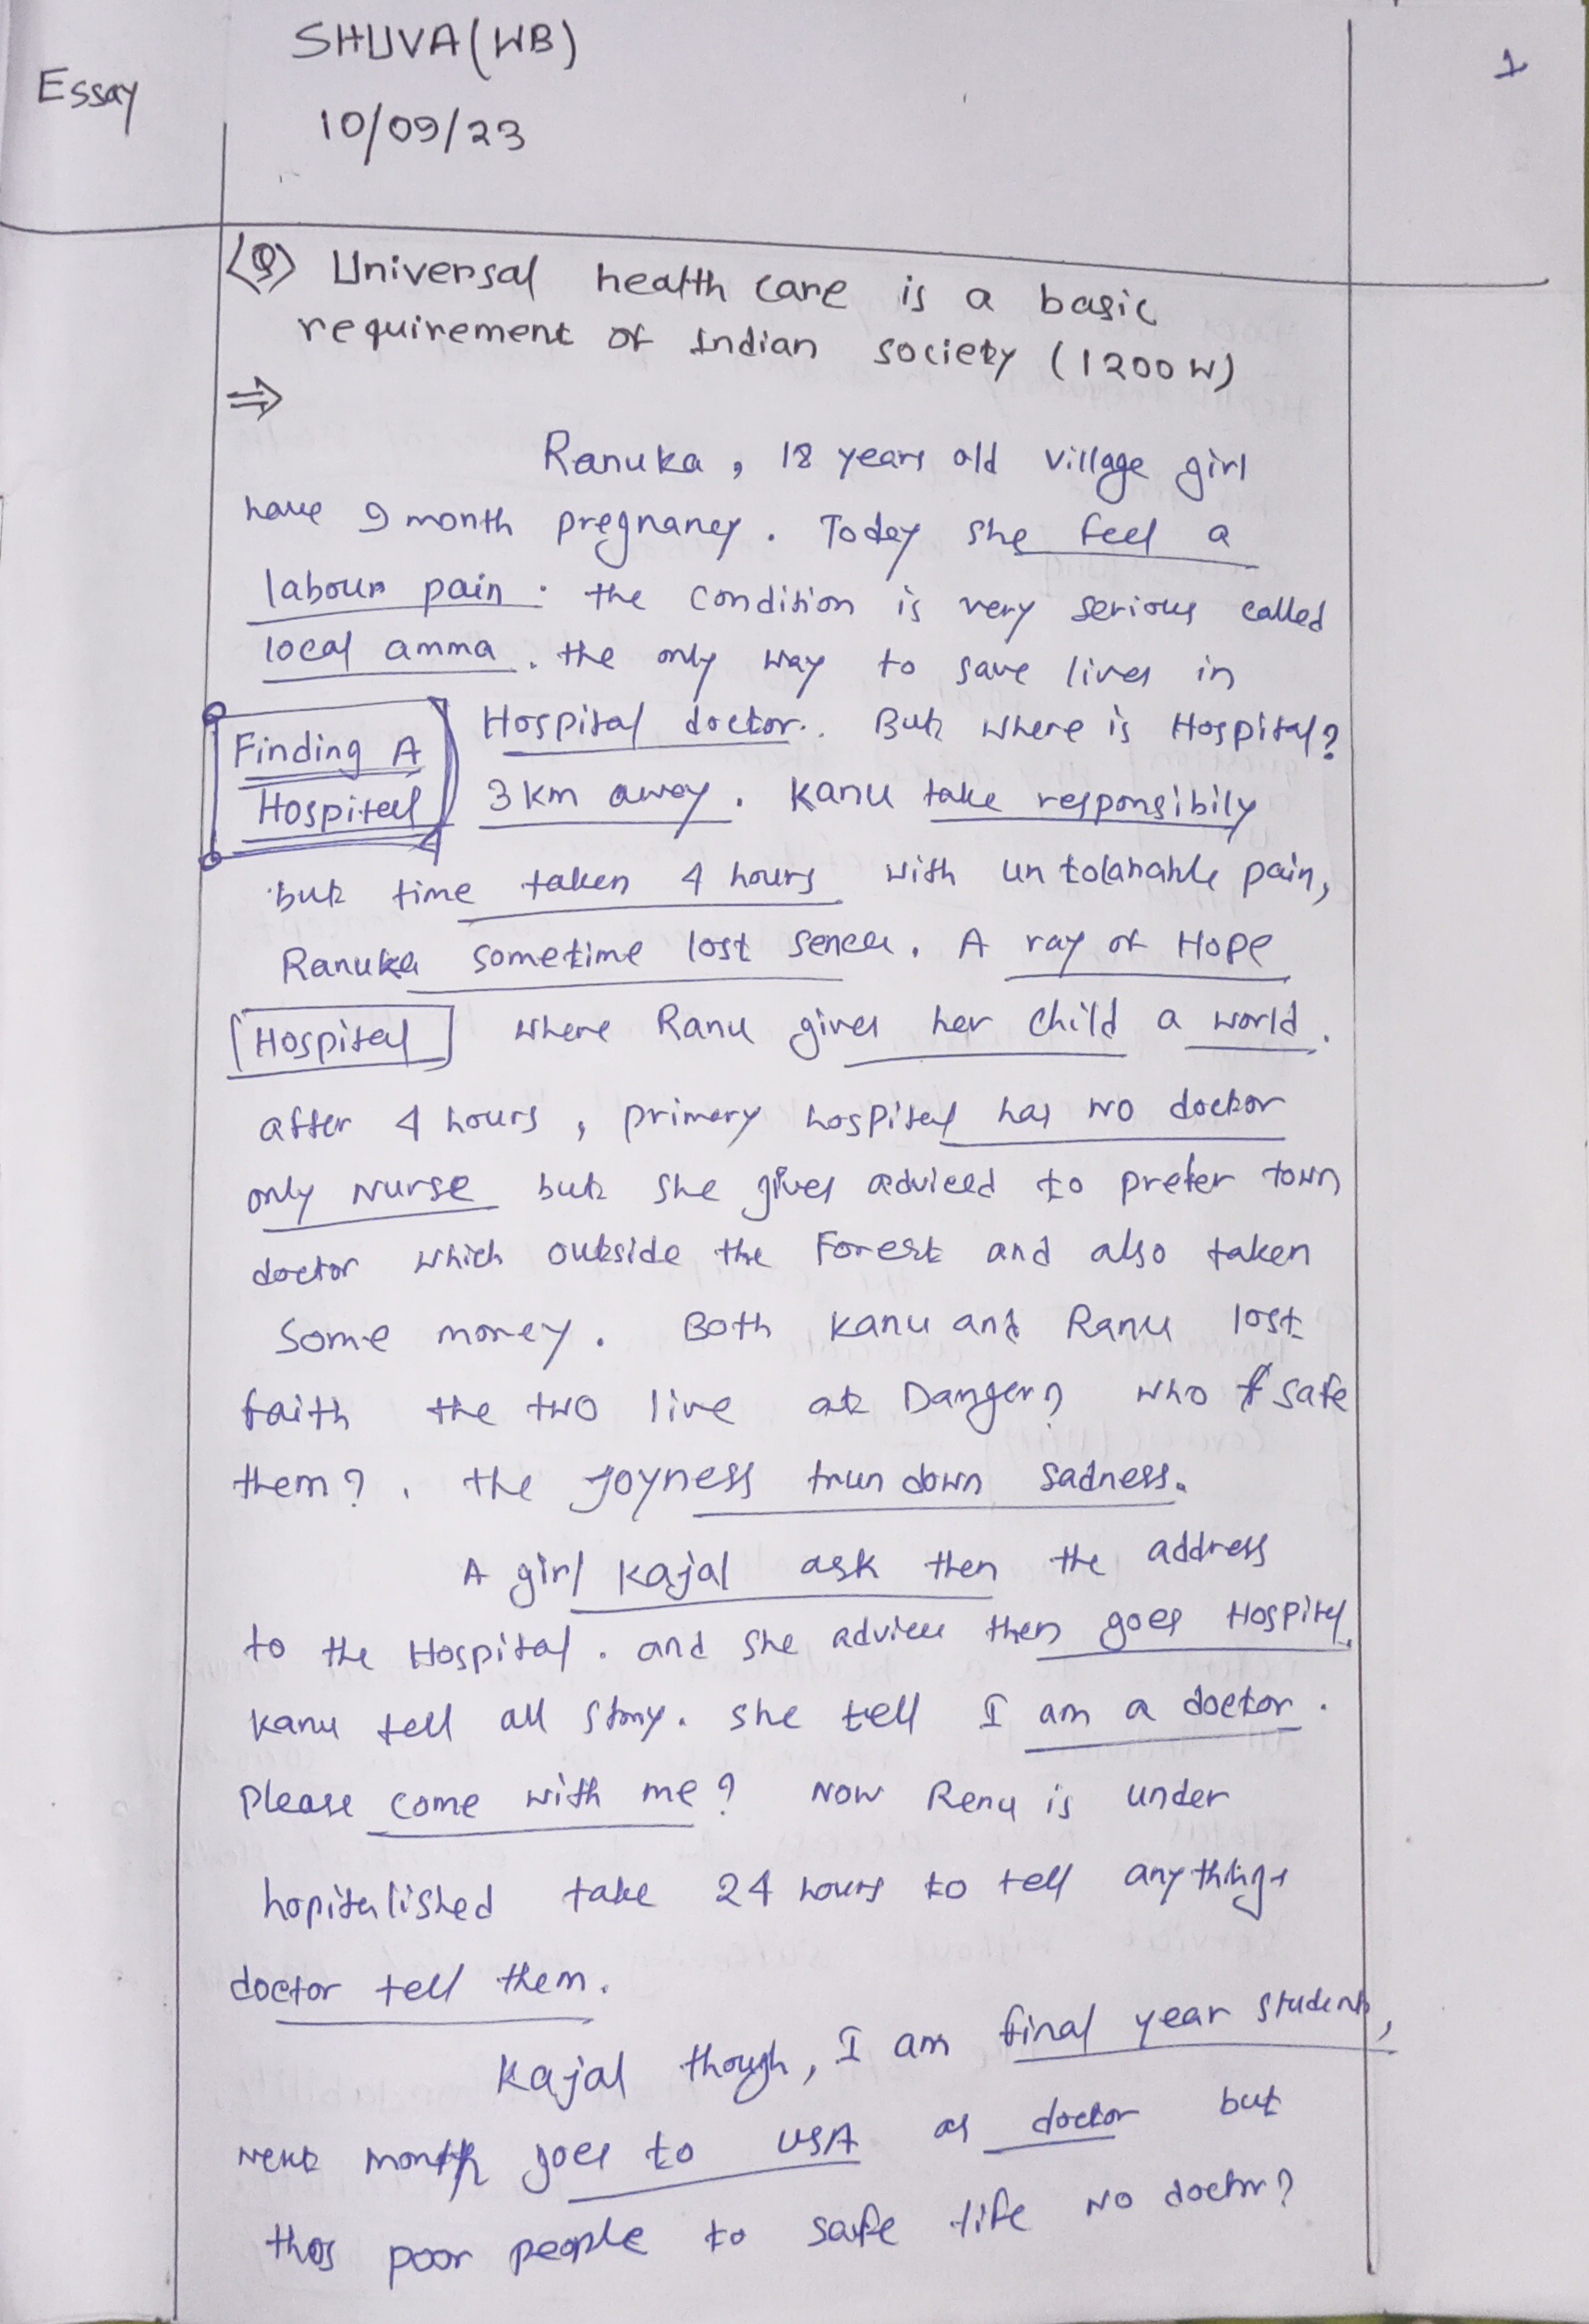 SHUVA(WB)
1
Essay
10/09/23
<Q> Universal health care is a basic
requirement of Indian society (1200 W)
⇒
Ranuka, 18 years old village girl
have 9 month pregnancy. Today she feel a
labour pain. the condition is very serious called
local amma. the only way to save lives in
Hospital doctor. But where is Hospital?
Finding A
Hospital
3 km away. Kanu take responsibily
but time taken 4 hours with untolarable pain,
Ranuka sometime lost sence. A ray of Hope
[Hospital] where Ranu gives her child a world.
after 4 hours, primary hospital has no doctor
only nurse but she gives adviced to prefer town
doctor which outside the Forest and also taken
some money. Both Kanu and Ranu lost
faith the two live at Danger? who safe
them?. the Joyness trun down sadness.
A girl Kajal ask then the address
to the Hospital. and she advice them goes Hospital.
Kanu tell all story. she tell I am a doctor.
please come with me? Now Renu is under
hopitalished take 24 hours to tell anythings
doctor tell them.
Kajal though, I am final year student,
next month goes to USA as doctor but
thos poor people to safe life no doctor?